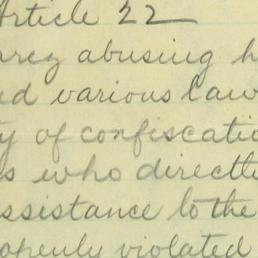 Article 22
arez abusing h
ed various law
ty of confiscatio
s who directl
ssistance to the
openly violated